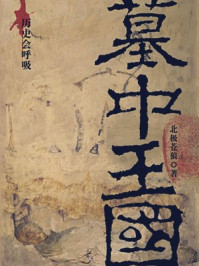 墓中王國
历史会呼吸
北极苍狼 著